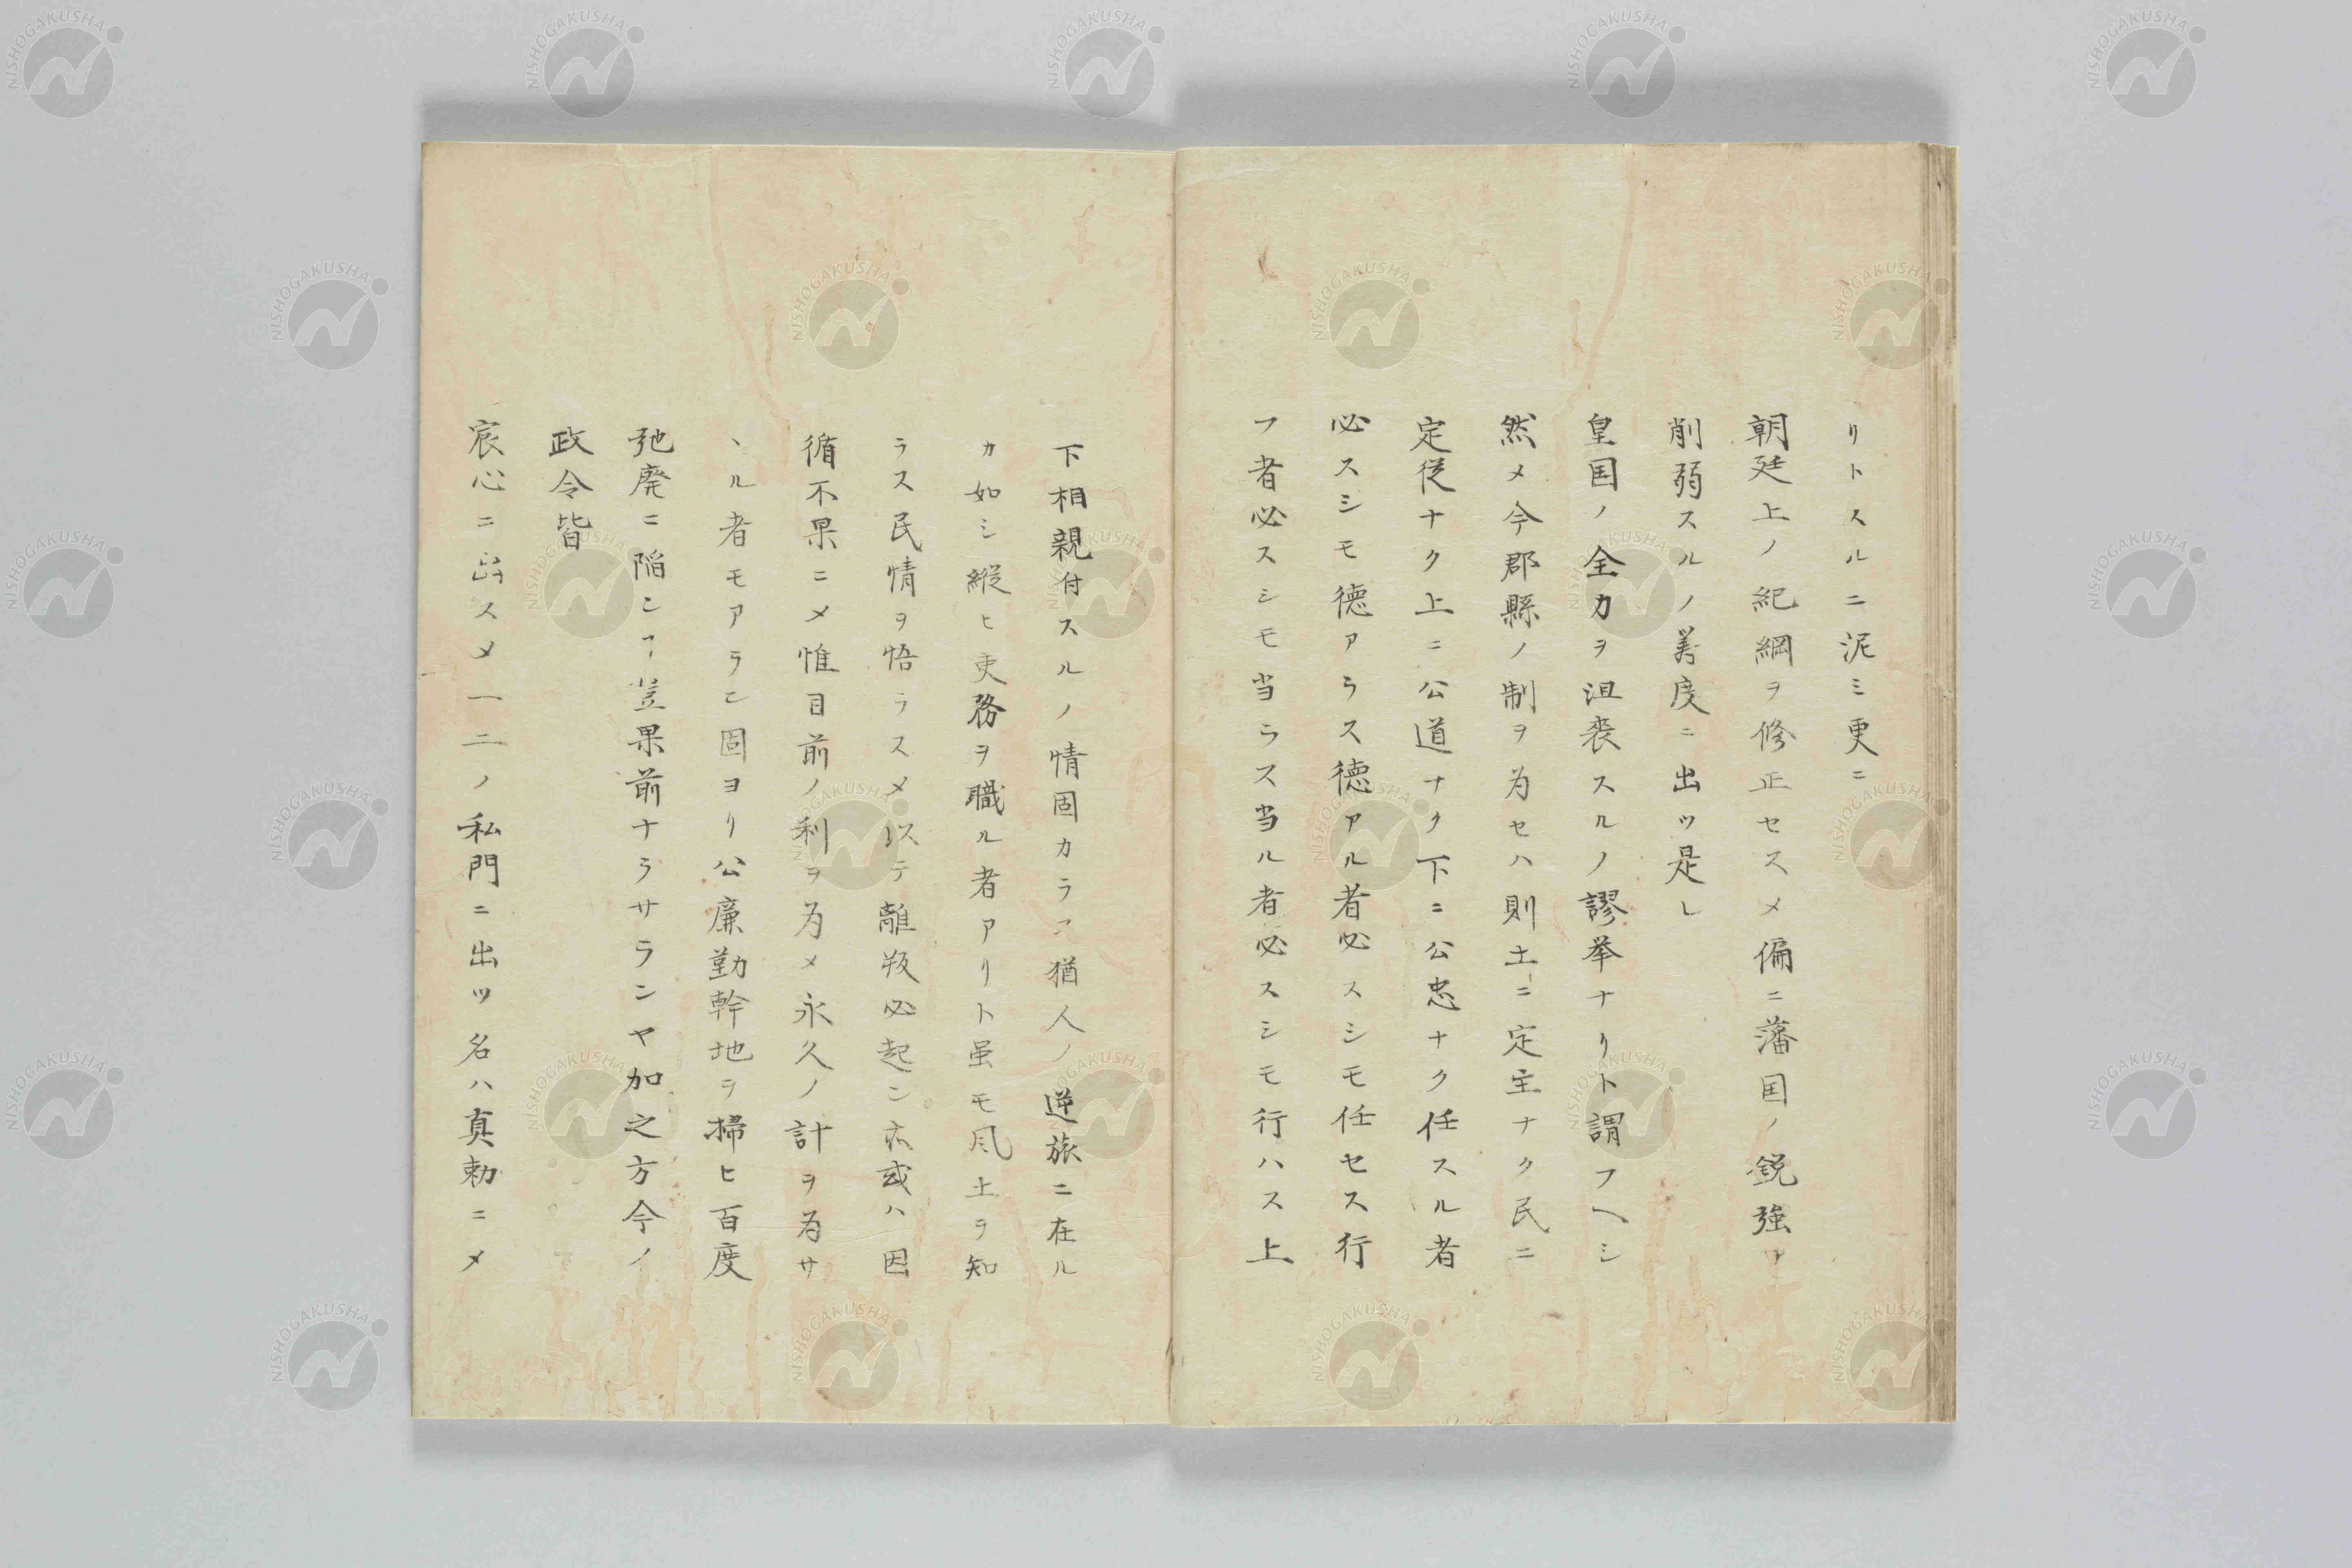 リトスルニ泥ミ更ニ
朝廷上ノ紀綱ヲ修正セスメ偏ニ藩国ノ鋭強ヲ
削弱スルノ善度ニ出ツ是レ
皇国ノ全力ヲ沮喪スルノ謬挙ナリト謂フヘシ
然メ今郡縣ノ制ヲ為セハ則土ニ定主ナク民ニ
定従ナク上ニ公道ナク下ニ公忠ナク任スル者
必スシモ徳アラス徳アル者必スシモ任セス行
フ者必スシモ当ラス当ル者必スシモ行ハス上
下相親付スルノ情固カラス猶人ノ逆旅ニ在ル
カ如シ縦ヒ吏務ヲ職ル者アリト虽モ风土ヲ知
ラス民情ヲ悟ラスメ以テ離叛必起ン亦或ハ因
循不果ニメ惟目前ノ利ヲ為メ永久ノ計ヲ為サ
ヽル者モアラン固ヨリ公廉勤幹地ヲ掃ヒ百度
弛廃ニ陥ン豈果前ナラサランヤ加之方今ノ
政令皆
宸心ニ出スメ一二ノ私門ニ出ツ名ハ真勅ニメ
NISHOGAKUSHA